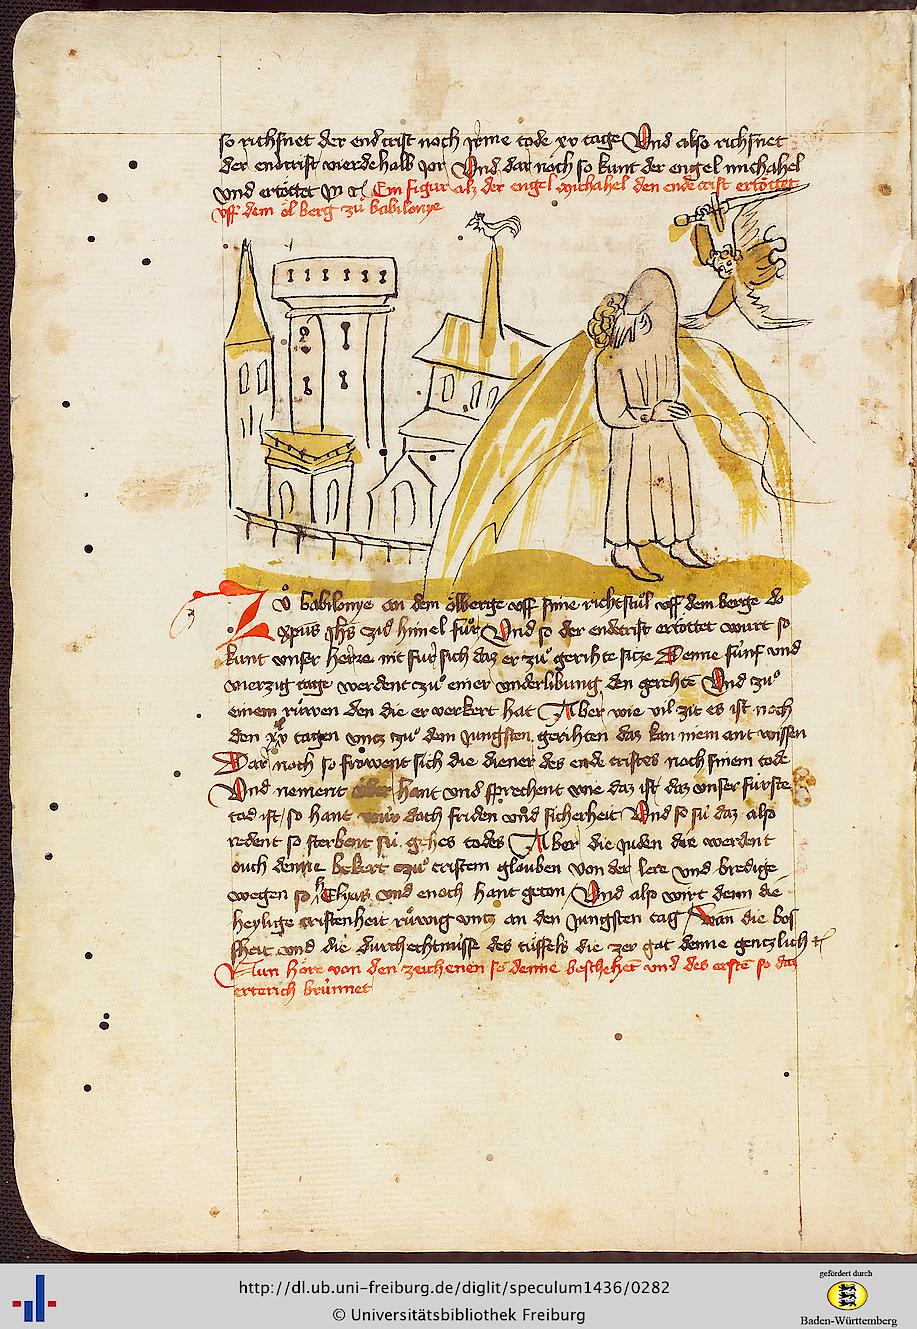 so richsnet der endcrist noch jrme tode xv tage Vnd also richsnet
der endcrist vierdehalb jor Vnd dar noch so kunt der engel michahel
vnd ertöttet in Ein figur alz der engel michahel den endecrist ertöttet
vff dem öl berg zů babilonye
Zů babilonye an dem ölberge vff sine richtstůl vff dem berge do
xpus jhs zů himel fůr Vnd so der endcrist ertöttet wurt so
kunt vnser herre nit fur sich daz er zů gerihte sitze Denne fünf vnd
vierzig tage werdent zů einer vnderlibung den gerehte Vnd zů
einem rüwen den die er verkert hat Aber wie vil zit es ist noch
den xlv tagen vntz zů dem jungsten gerihten daz kan niem ant wissen
Dar noch so frowent sich die diener des ende cristes noch sinem tode
Vnd nement hant vnd sprechent wie daz ist daz vnser fürste
tod ist so hant wir doch friden vnd sicherheit Vnd so sü daz also
redent so sterbent sü gehes todes Aber die juden die werdent
ouch denne bekert zů cristem glouben von der lere vnd bredige
wegen so Elyas vnd enoch hant geton Vnd also wirt denn die
heylige cristenheit rüwig vntz an den jungsten tag Wan die bos
sheit vnd die durchechtnisse des tüffels die zer gat denne gentzlich
Nun höre von den zeichenen so denne beschehet vnd des erste so daz
erterich brünnet
http://dl.ub.uni-freiburg.de/diglit/speculum1436/0282
© Universitätsbibliothek Freiburg
gefördert durch
Baden-Württemberg